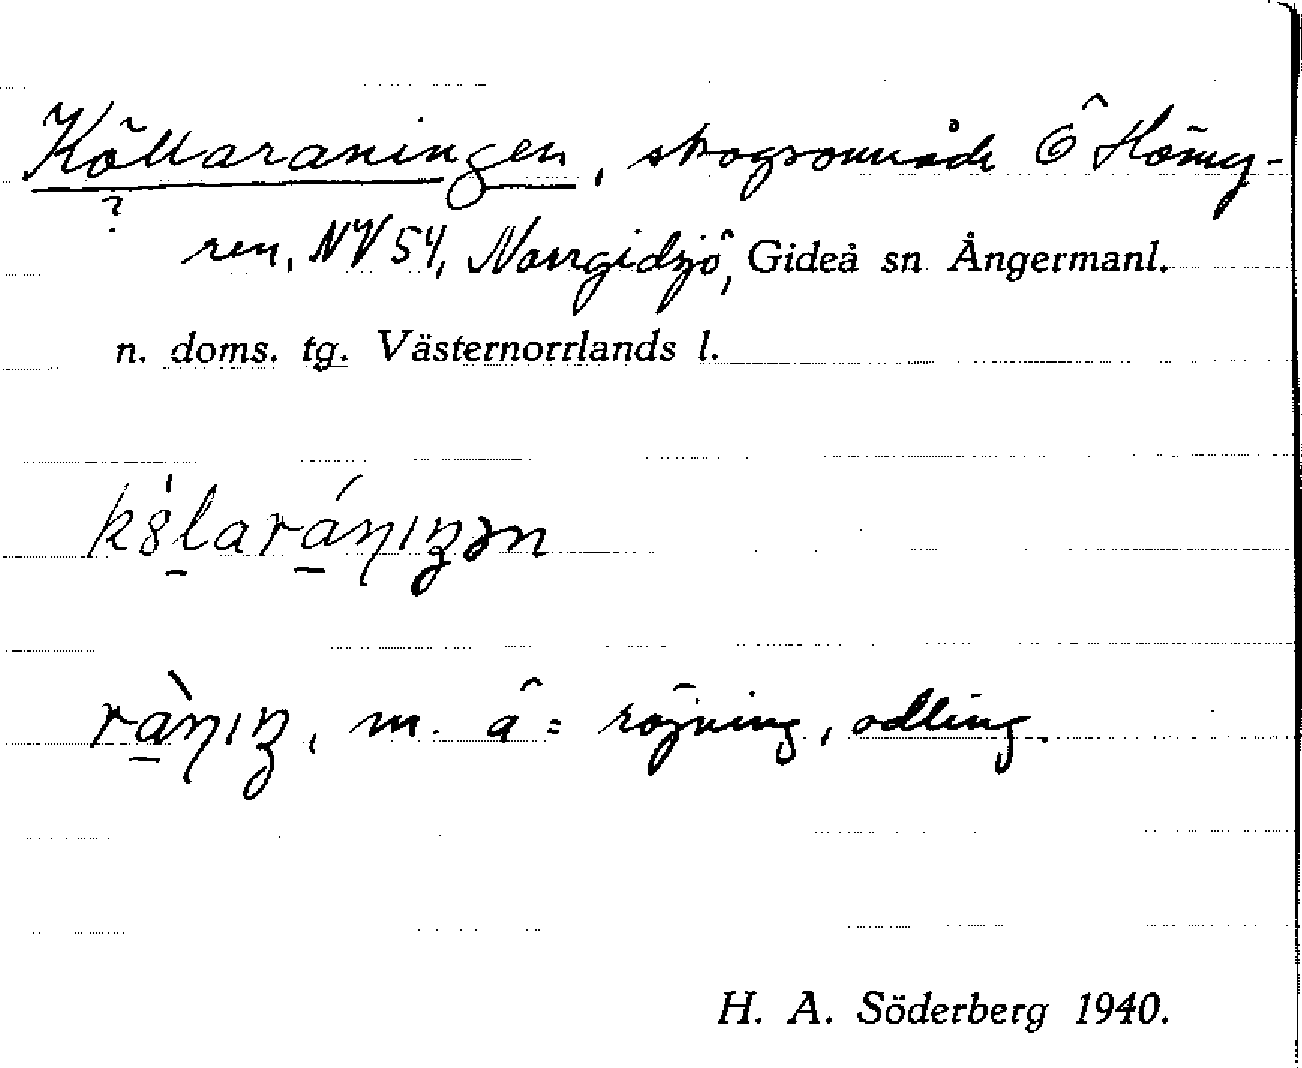 Köllaraningen, skogsområde Ö Hömyr-
?
ren, NV 54, Norrgidsjö, Gideå sn Ångermanl.
n. doms. tg. Västernorrlands l.
k8̀laráŋıŋən
ràŋıŋ, m. â = röjning, odling.
H. A. Söderberg 1940.